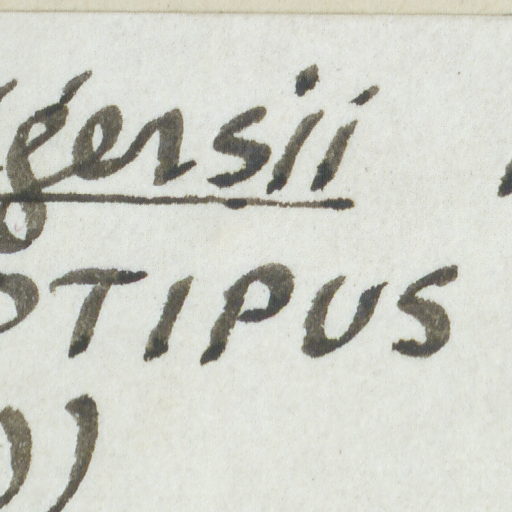 gersii
OTIPUS
))